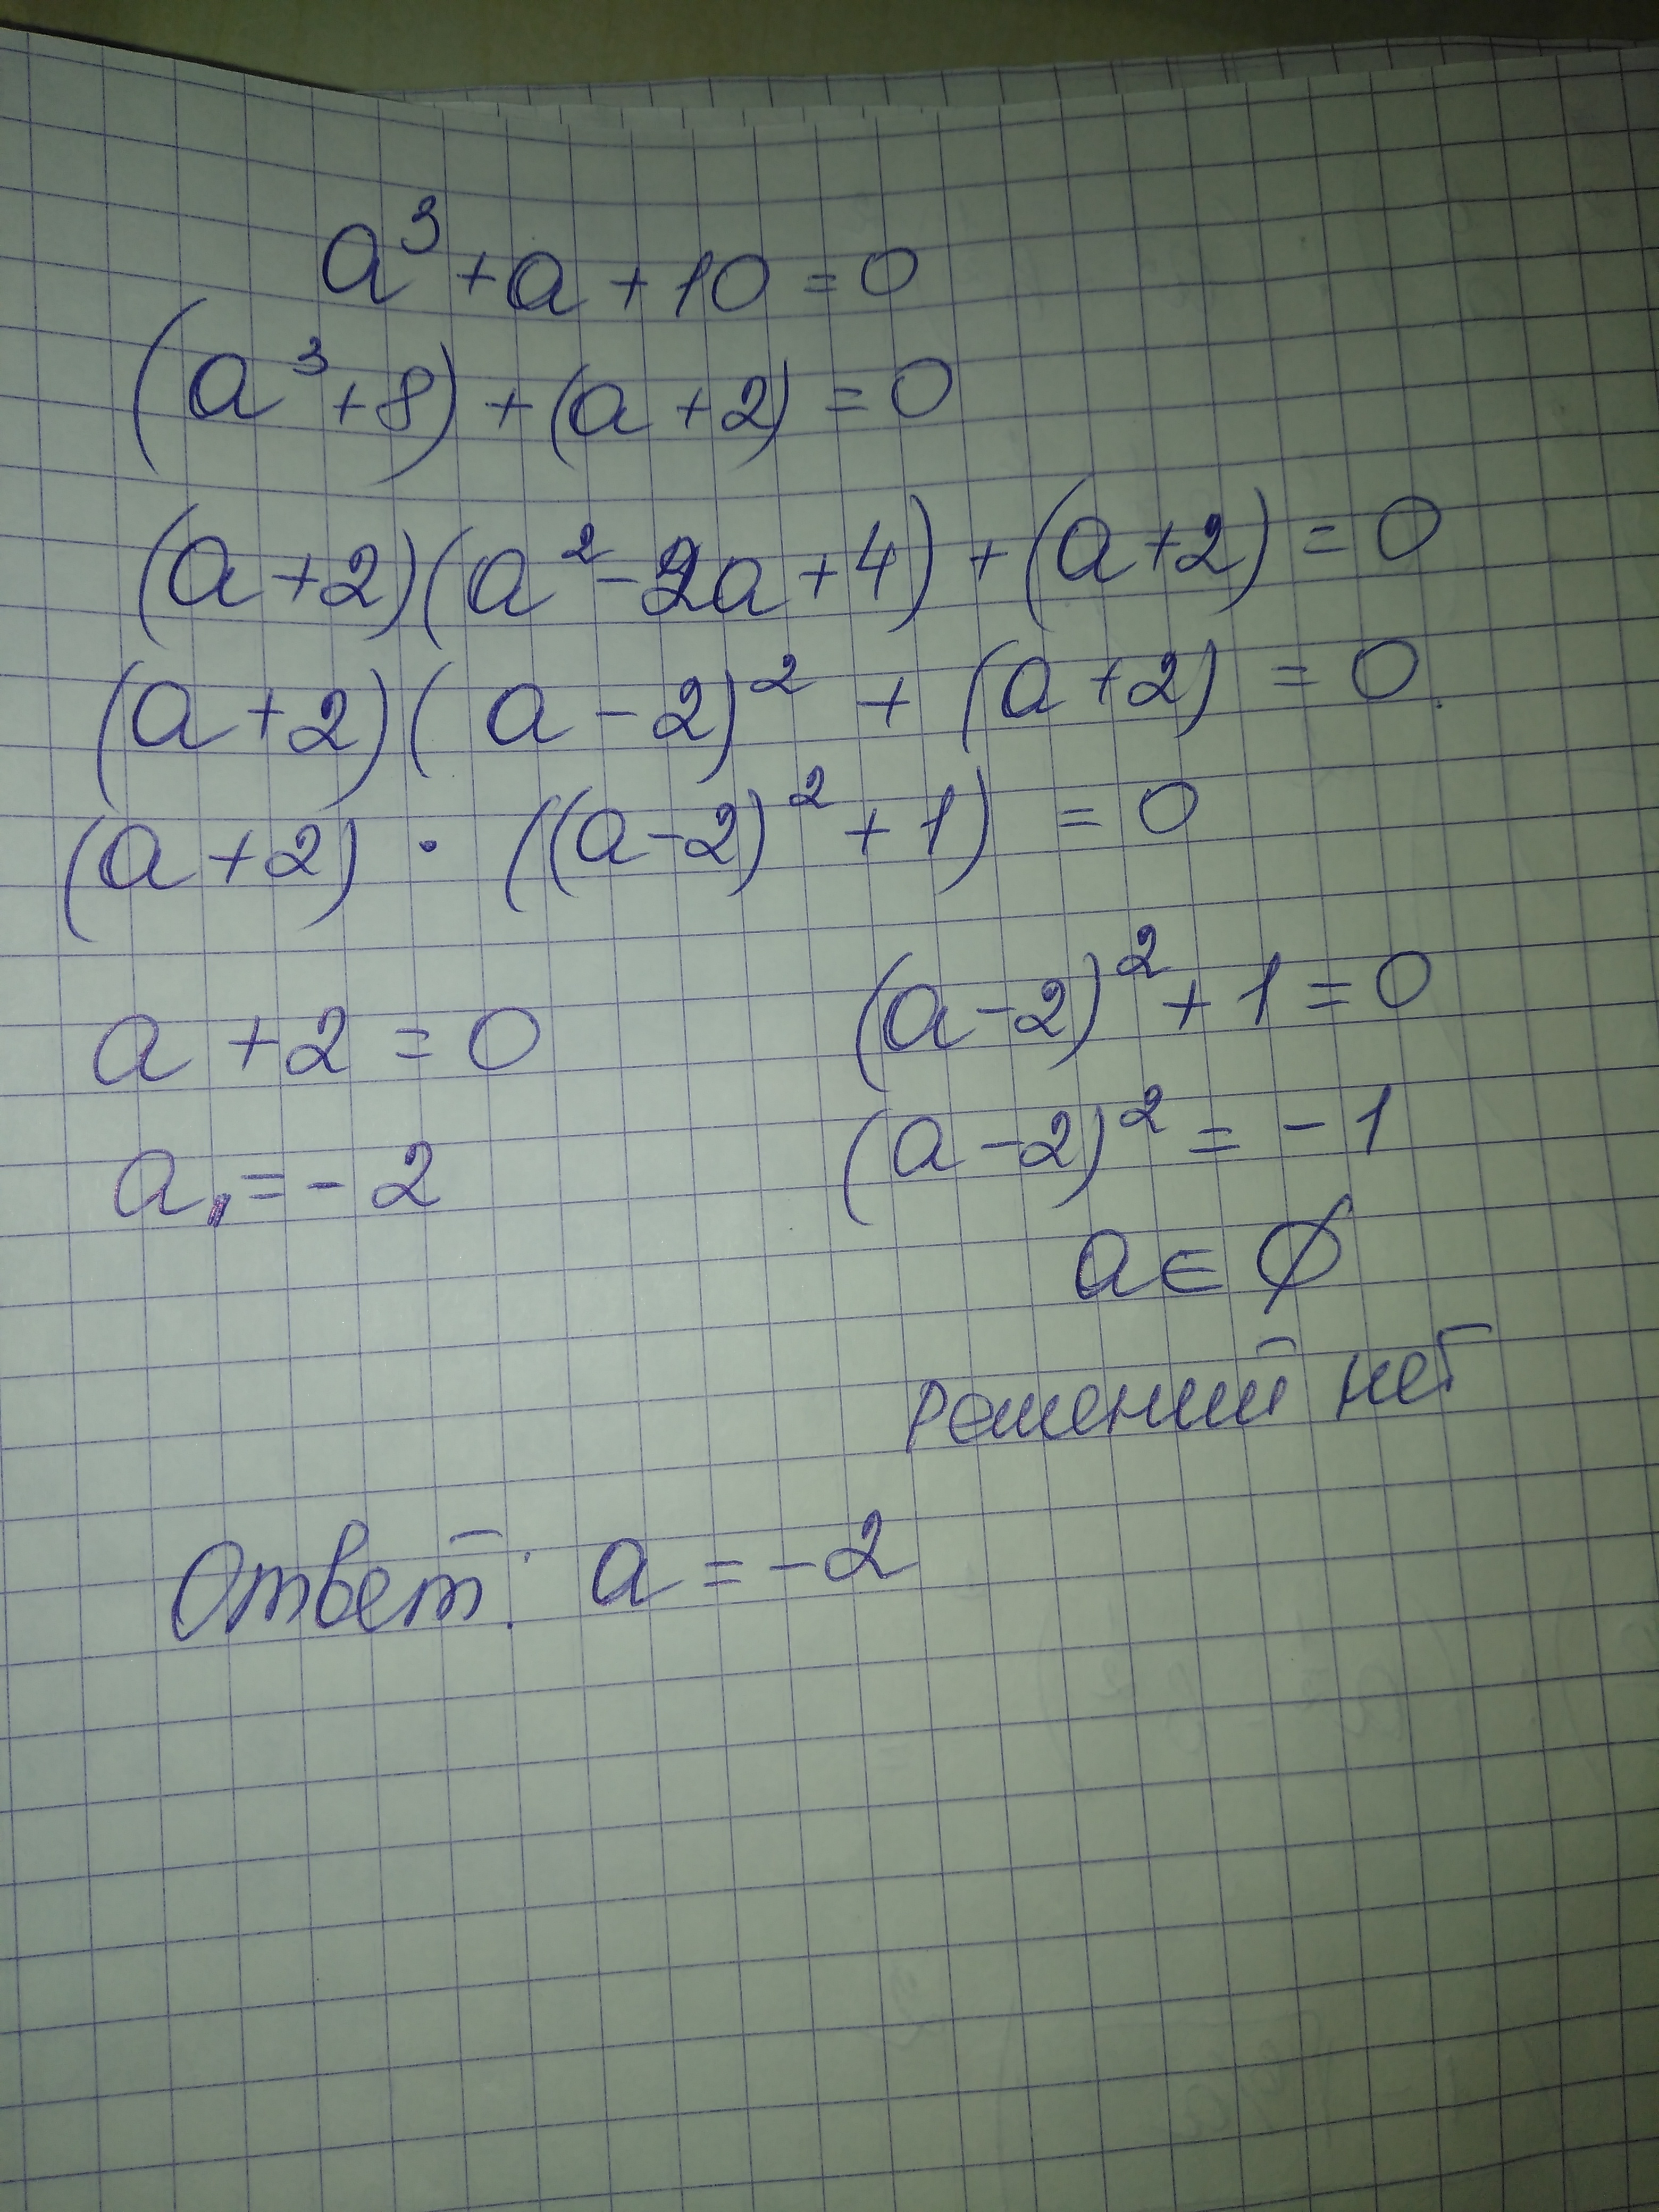 a³ + a + 10 = 0
(a³ + 8) + (a + 2) = 0
(a + 2)(a² - 2a + 4) + (a + 2) = 0
(a + 2)(a - 2)² + (a + 2) = 0
(a + 2) · ((a - 2)² + 1) = 0
a + 2 = 0
a₁ = - 2
(a - 2)² + 1 = 0
(a - 2)² = - 1
a ∈ ∅
решений нет
Ответ: a = - 2